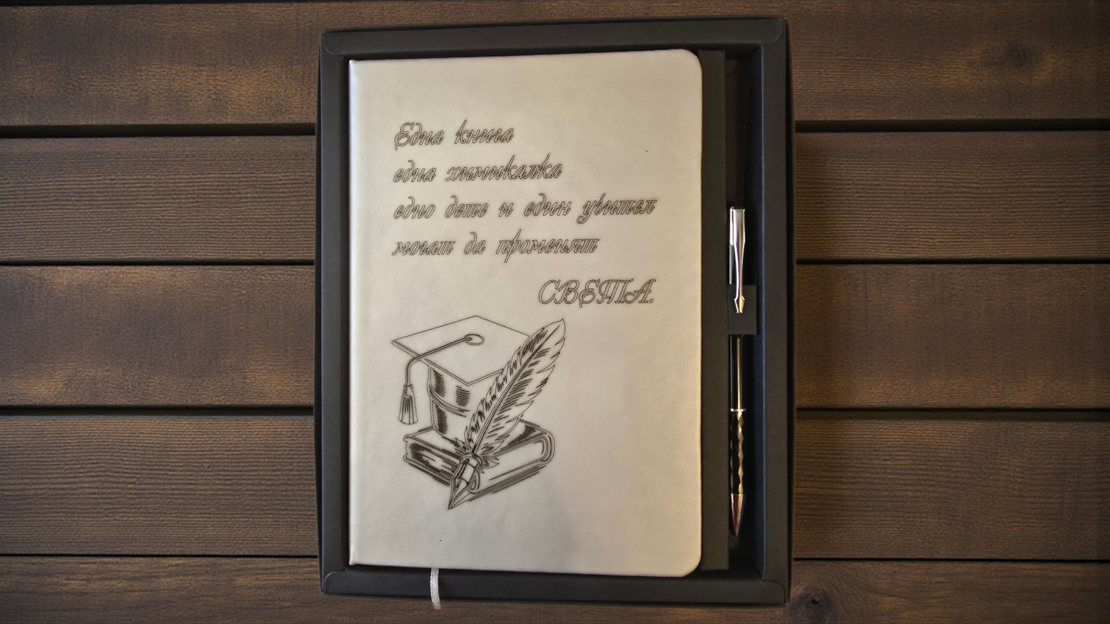 Една книга
една химикалка
едно дете и един учител
могат да променят
СВЕТА.